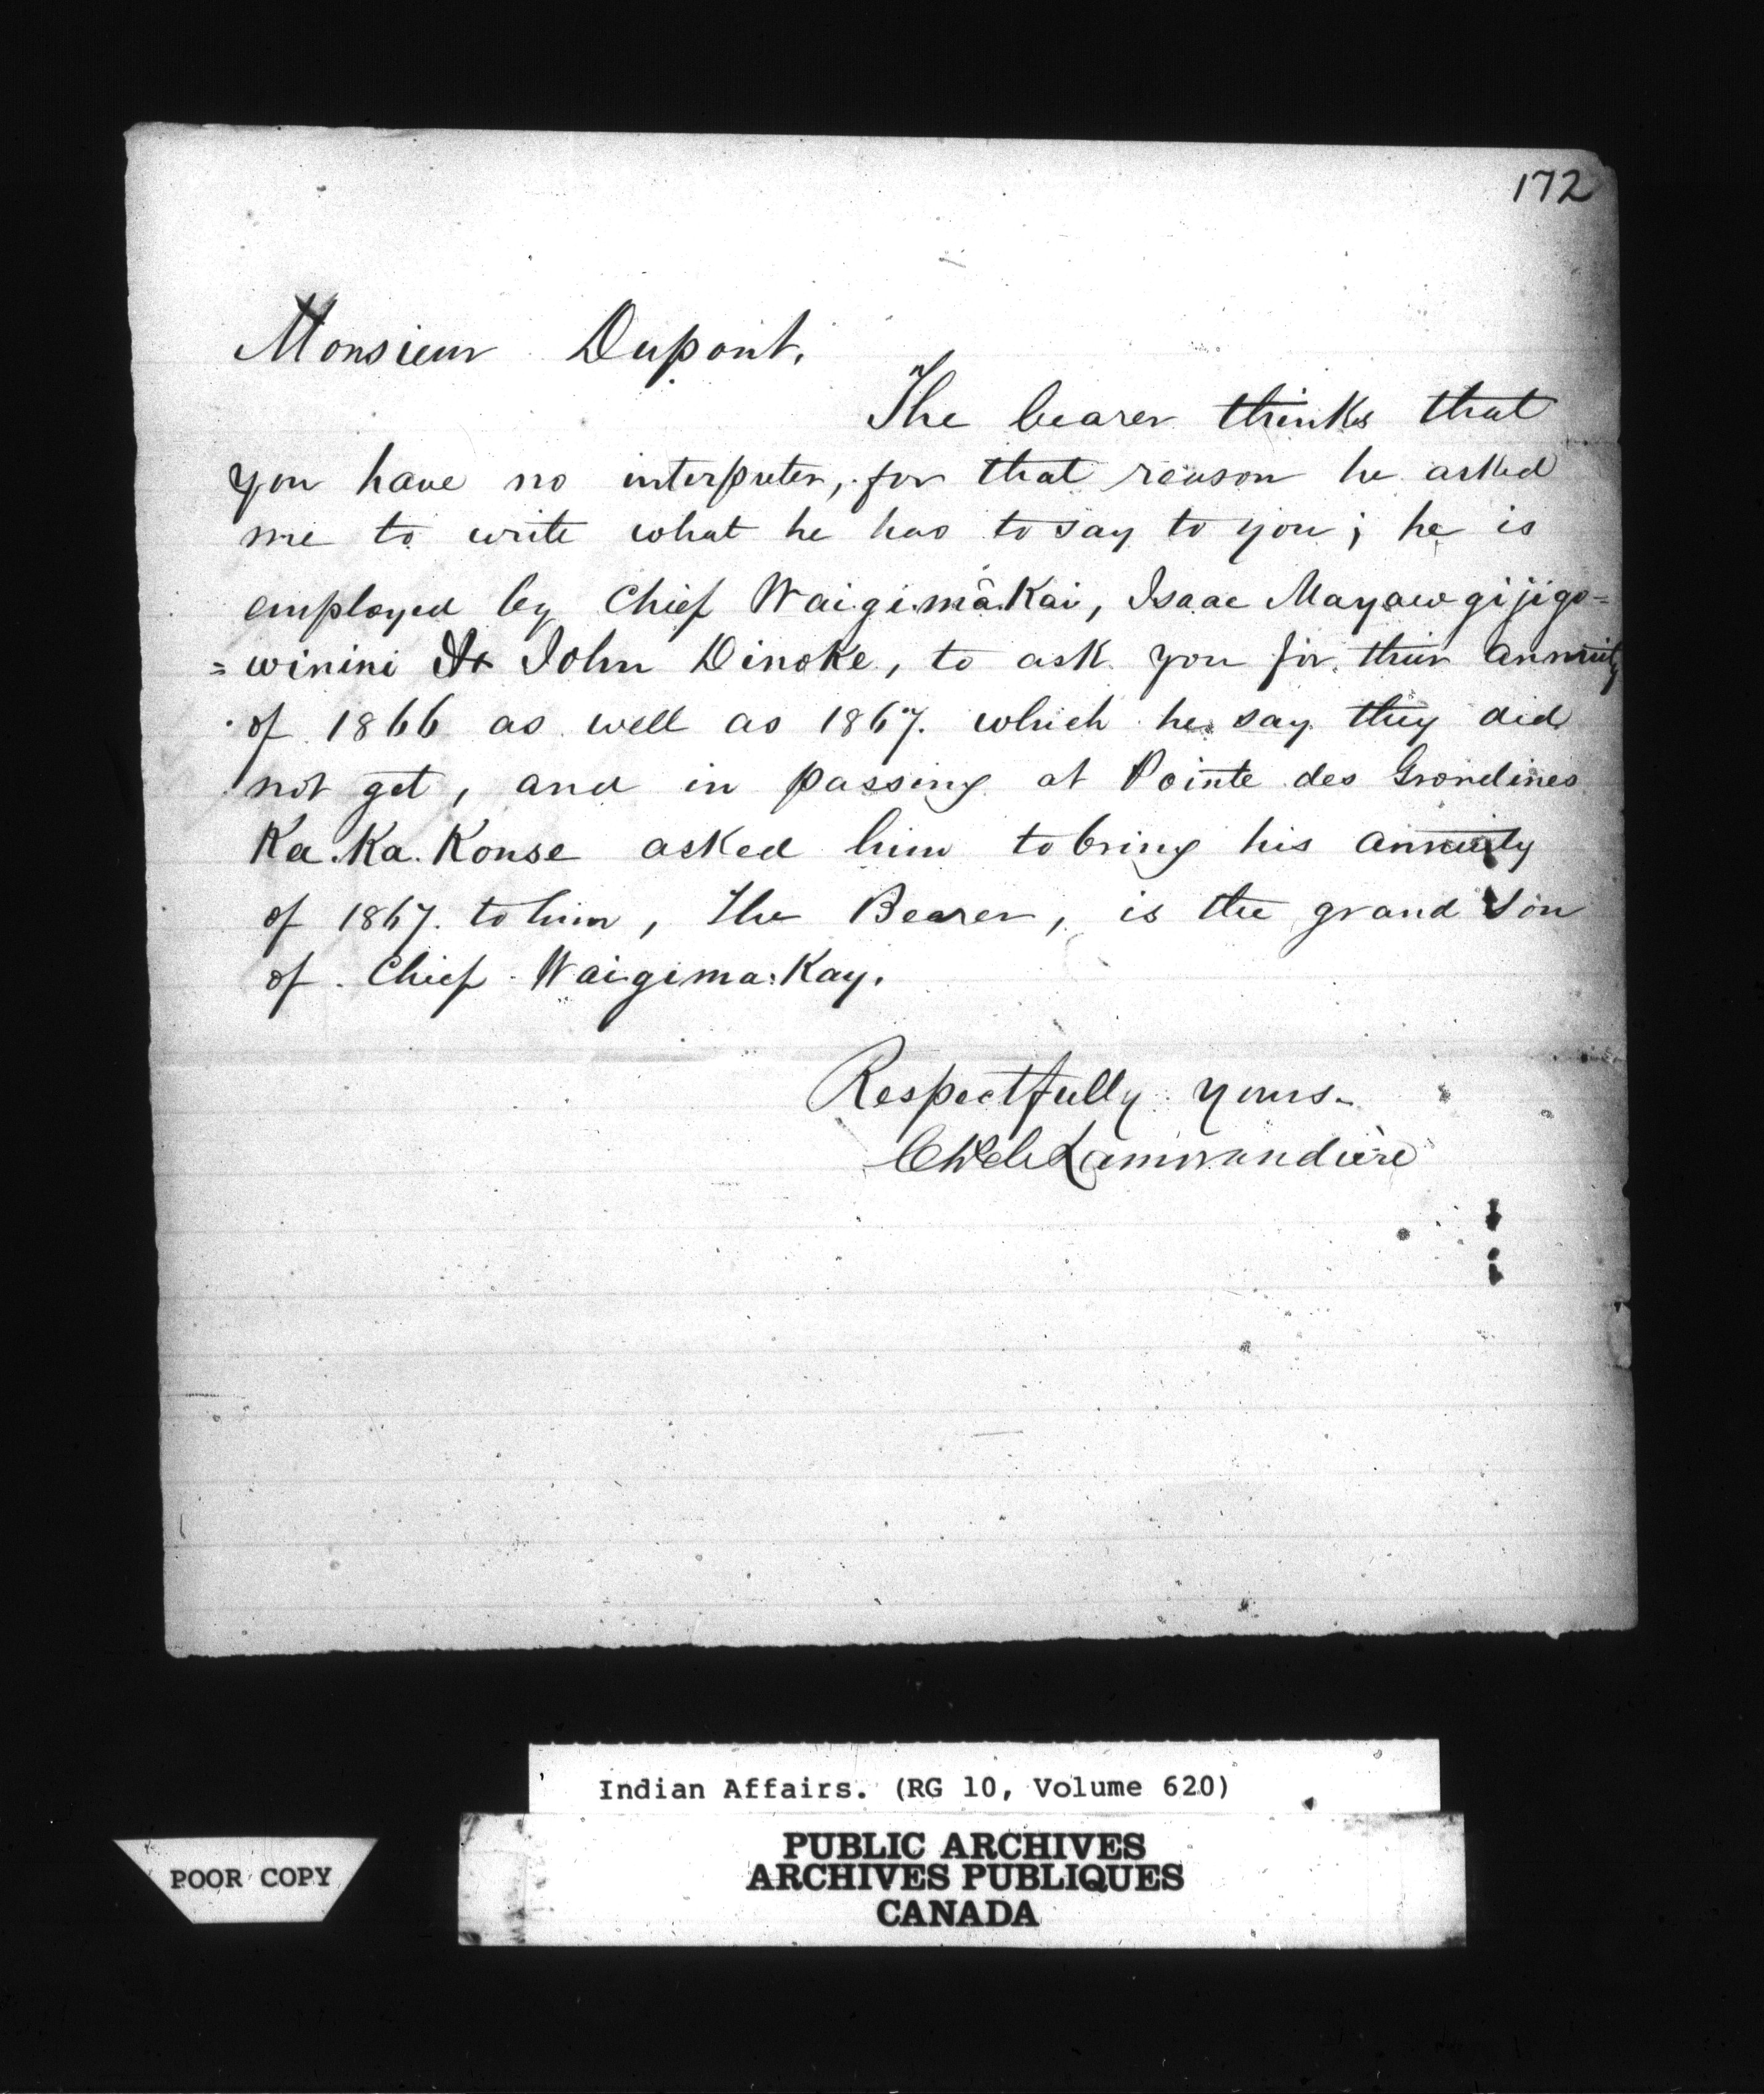 172
Monsieur Dupont.
The bearer thinks that
you have no interpreter, for that reason he asked
me to write what he has to say to you; he is
employed by Chief Waigimâkai, Isaac Mayawgijigo=
=winini & John Dinoke, to ask you for their annuity
of 1866 as well as 1867. which he say they did
not get, and in passing at Pointe des Grondines
Ka.Ka.Konse asked him to bring his annuity
of 1867. to him, The Bearer, is the grand son
of Chief Waigima.Kay.
Respectfully yours.
Lamorandière
Indian Affairs. (RG 10, Volume 620)
PUBLIC ARCHIVES
ARCHIVES PUBLIQUES
CANADA
POOR COPY